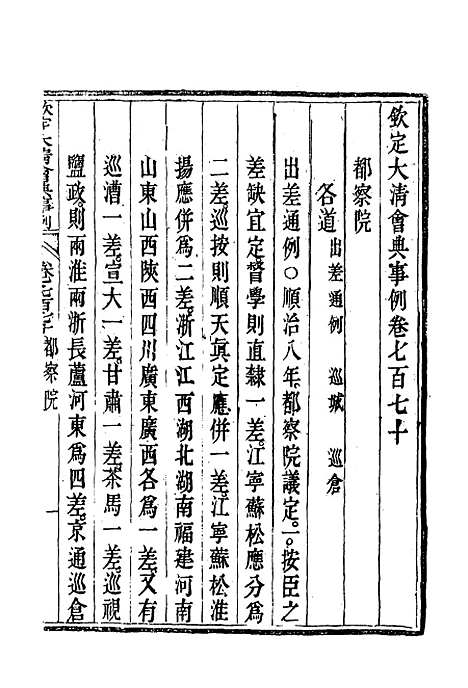 欽定大清會典事例卷七百七十
都察院
各道 出差通例 巡城 巡倉
出差通例○順治八年都察院議定一按臣之
差缺宜定督學則直隸一差江寧蘇松應分爲
二差巡按則順天真定應併一差江寧蘇松淮
揚應併爲二差浙江江西湖北湖南福建河南
山東山西陝西四川廣東廣西各爲一差又有
巡漕一差宣大一差甘肅一差茶馬一差巡視
鹽政則兩淮兩浙長蘆河東爲四差京通巡倉
欽定大清會典事例 卷七百七十 都察院 一